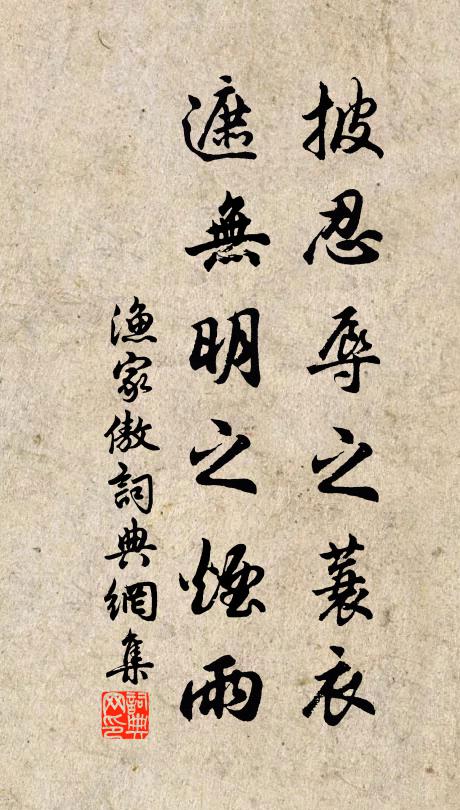 披忍辱之蓑衣
遮無明之煙雨
漁家傲詞典網集
詞典
网印